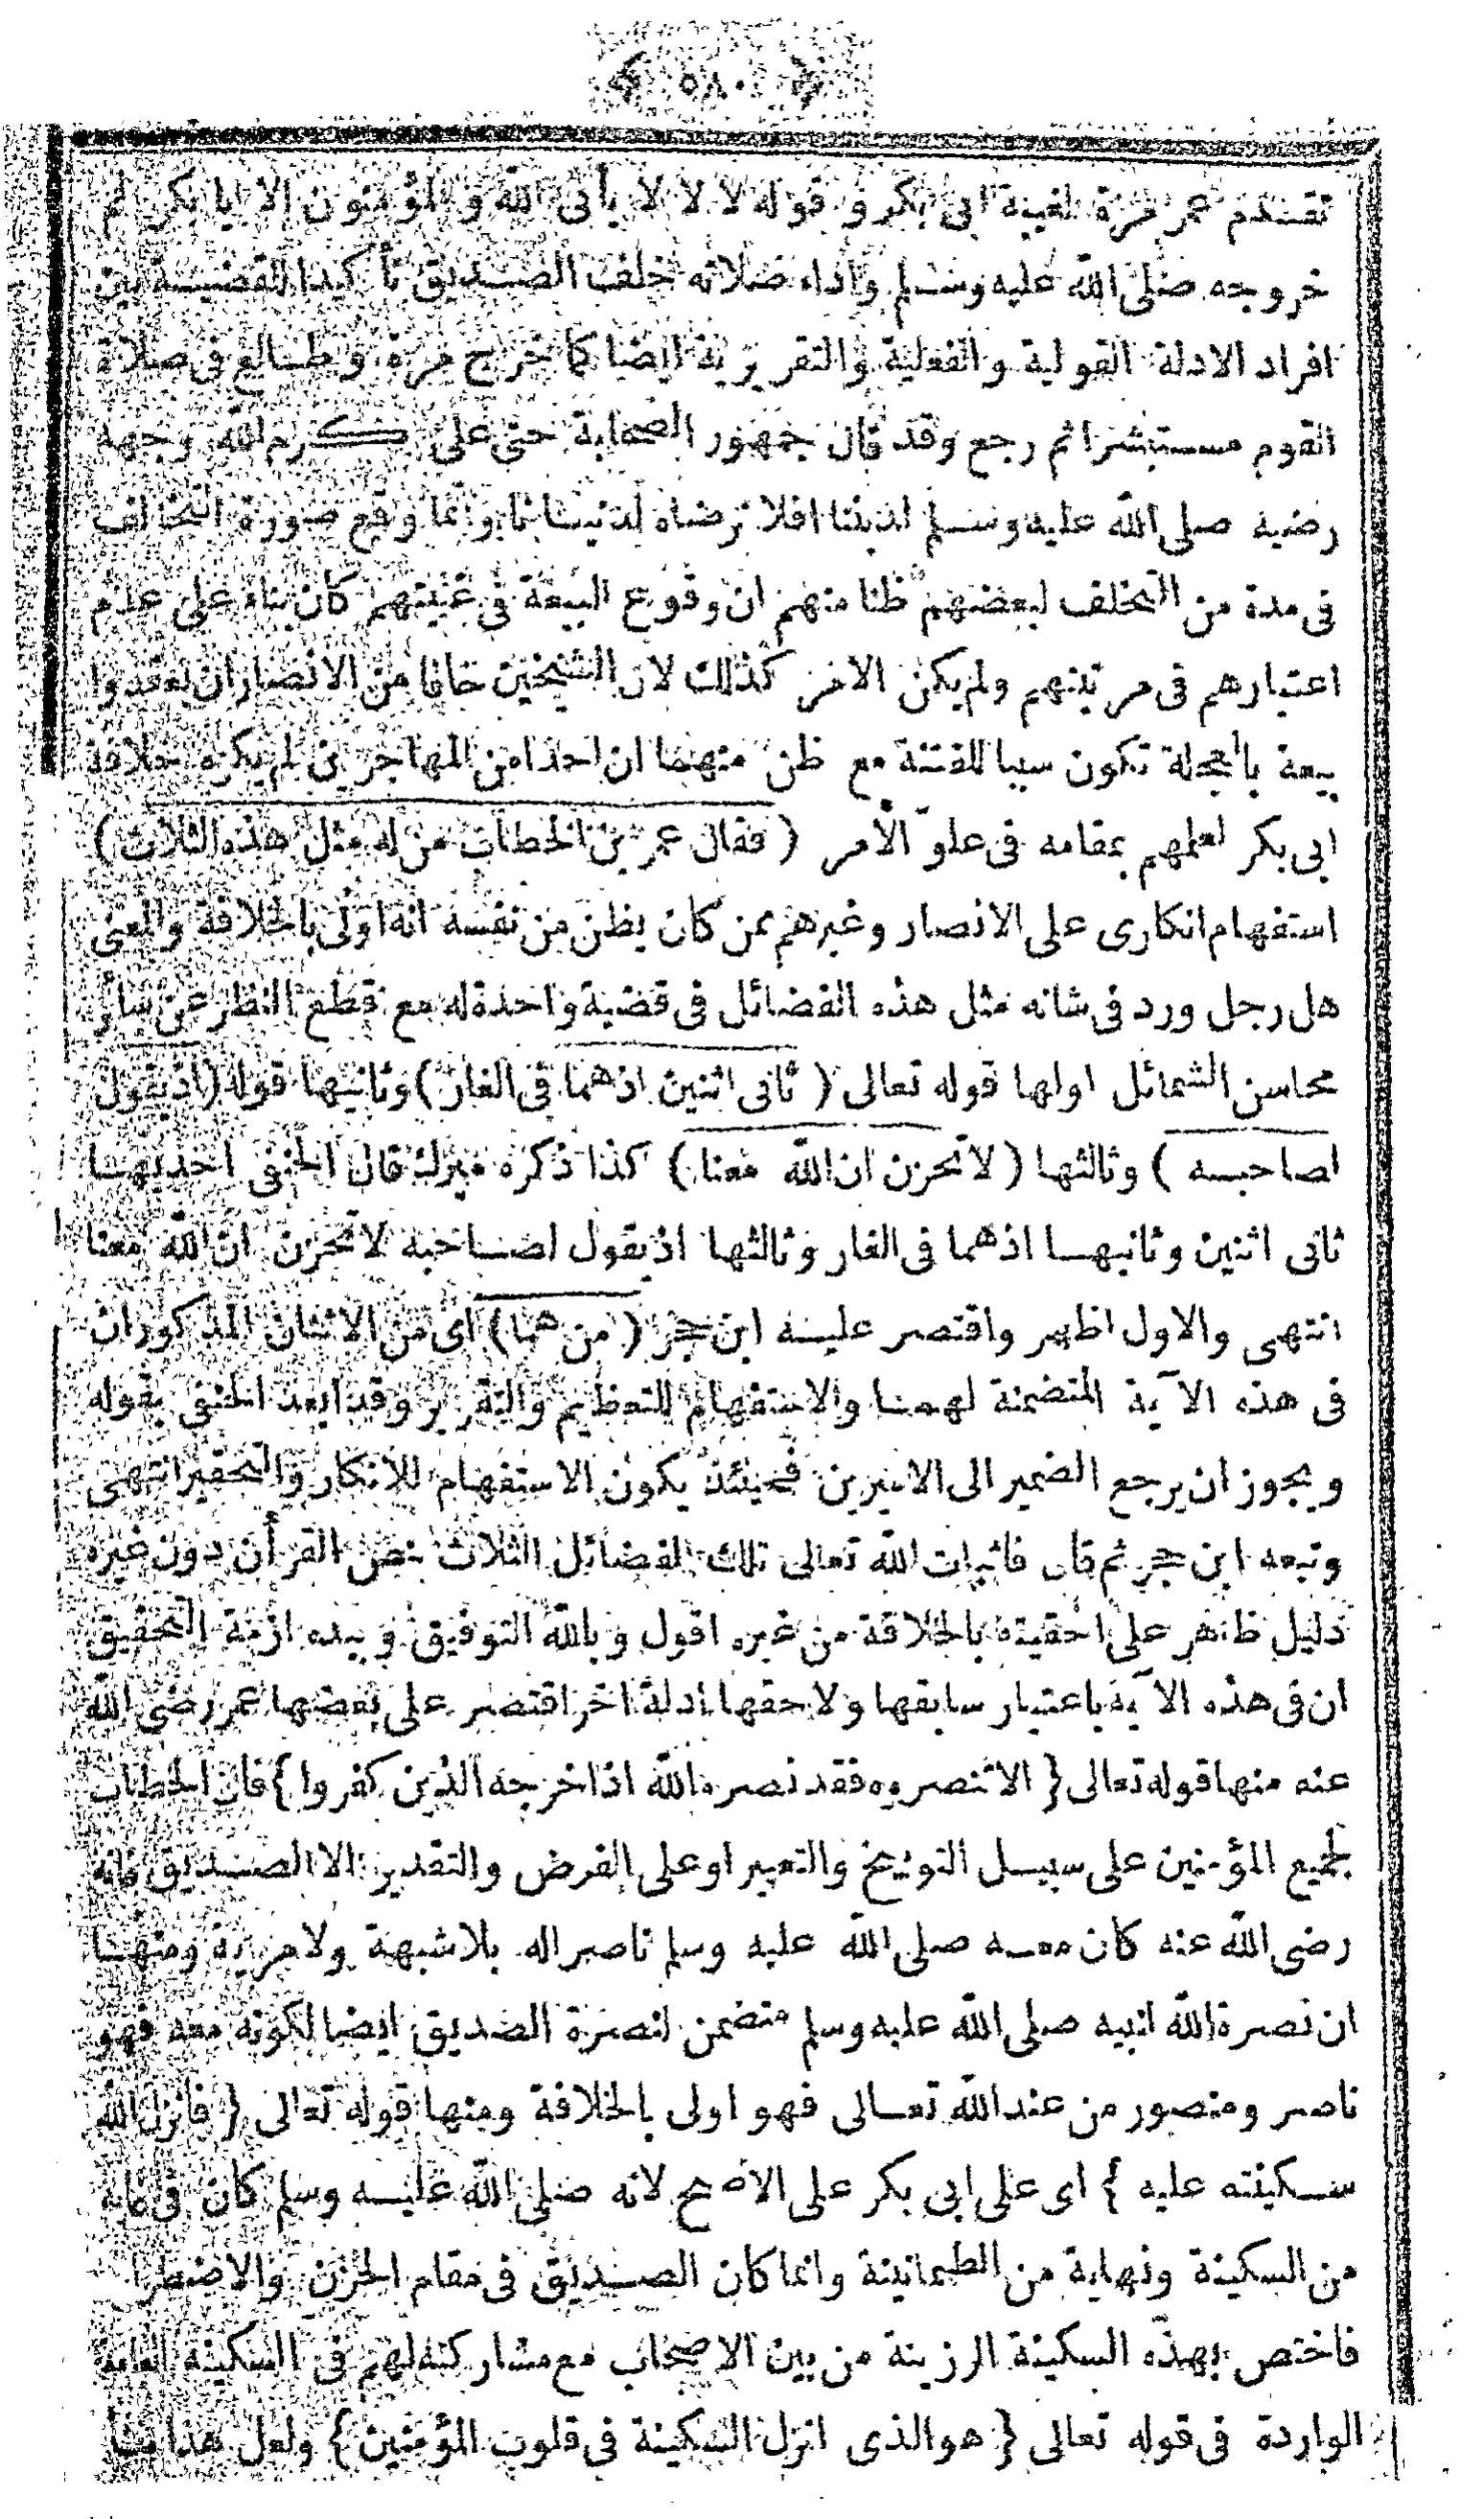 ﴿ ٥٨٠ ﴾
تقدم عمر مرة لغيبة ابى بكر و قوله لا لا لا يأبى الله والمؤمنون الا ابابكر ثم
خروجه صلى الله عليه وسلم واداء صلاته خلف الصديق تأكيدا لقضيته بين
افراد الادلة القولية والفعلية والتقريرية ايضا كما خرج مرة وطالع فى صلاة
القوم مستبشرا ثم رجع وقد قال جمهور الصحابة حتى على كرم الله وجهه
رضيه صلى الله عليه وسلم لديننا افلا نرضاه لدنيانا وانما وقع صورة التخالف
فى مدة من التخلف لبعضهم ظنا منهم ان وقوع البيعة فى غيبتهم كان بناء على عدم
اعتبارهم فى مرتبتهم ولم يكن الامر كذلك لان الشيخين خافا من الانصار ان يعقدوا
بيعة بالعجلة تكون سببا للفتنة مع ظن منهما ان احدا من المهاجرين لم يكره خلافة
ابى بكر لعلمهم بمقامه فى علو الأمر ( فقال عمر بن الخطاب من له مثل هذه الثلاث )
استفهام انكارى على الانصار وغيرهم ممن كان يظن من نفسه انه اولى بالخلافة والمعنى
هل رجل ورد فى شانه مثل هذه الفضائل فى قضية واحدة له مع قطع النظر عن سائر
محاسن الشمائل اولها قوله تعالى ( ثانى اثنين اذهما فى الغار ) وثانيها قوله ( اذ يقول
لصاحبه ) وثالثها ( لاتحزن ان الله معنا ) كذا ذكره ميرك قال الحنفى احديها
ثانى اثنين وثانيها اذهما فى الغار وثالثها اذ يقول لصاحبه لاتحزن ان الله معنا
انتهى والاول اظهر واقتصر عليه ابن حجر ( من هما ) اى من الاثنان المذكوران
فى هذه الآية المتضمنة لهما والاستفهام للتعظيم والتقرير وقد ابعد الحنفى بقوله
ويجوز ان يرجع الضمير الى الاميرين فحينئذ يكون الاستفهام للانكار والتحقير انتهى
وتبعه ابن حجر ثم قال فاثبات الله تعالى تلك الفضائل الثلاث بنص القرأن دون غيره
دليل ظاهر على احقيته بالخلافة من غيره اقول وبالله التوفيق وبيده ازمة التحقيق
ان فى هذه الآية باعتبار سابقها ولاحقها ادلة اخر اقتصر على بعضها عمر رضى الله
عنه منها قوله تعالى { الا تنصروه فقد نصره الله اذ اخرجه الذين كفروا } فان الخطاب
لجميع المؤمنين على سبيل التوبيخ والتعيير او على الفرض والتقدير الا الصديق فانه
رضى الله عنه كان معه صلى الله عليه وسلم ناصرا له بلاشبهة ولا مرية ومنها
ان نصرة الله لنبيه صلى الله عليه وسلم متضمن لنصرة الصديق ايضا لكونه معه فهو
ناصر ومنصور من عند الله تعالى فهو اولى بالخلافة ومنها قوله تعالى { فانزل الله
سكينته عليه } اى على ابى بكر على الاصح لانه صلى الله عليه وسلم كان فى غاية
من السكينة ونهاية من الطمانينة وانما كان الصديق فى مقام الحزن والاضطراب
فاختص بهذه السكينة الرزينة من بين الاصحاب مع مشاركته لهم فى السكينة العامة
الواردة فى قوله تعالى { هو الذى انزل السكينة فى قلوب المؤمنين } ولعل هذا